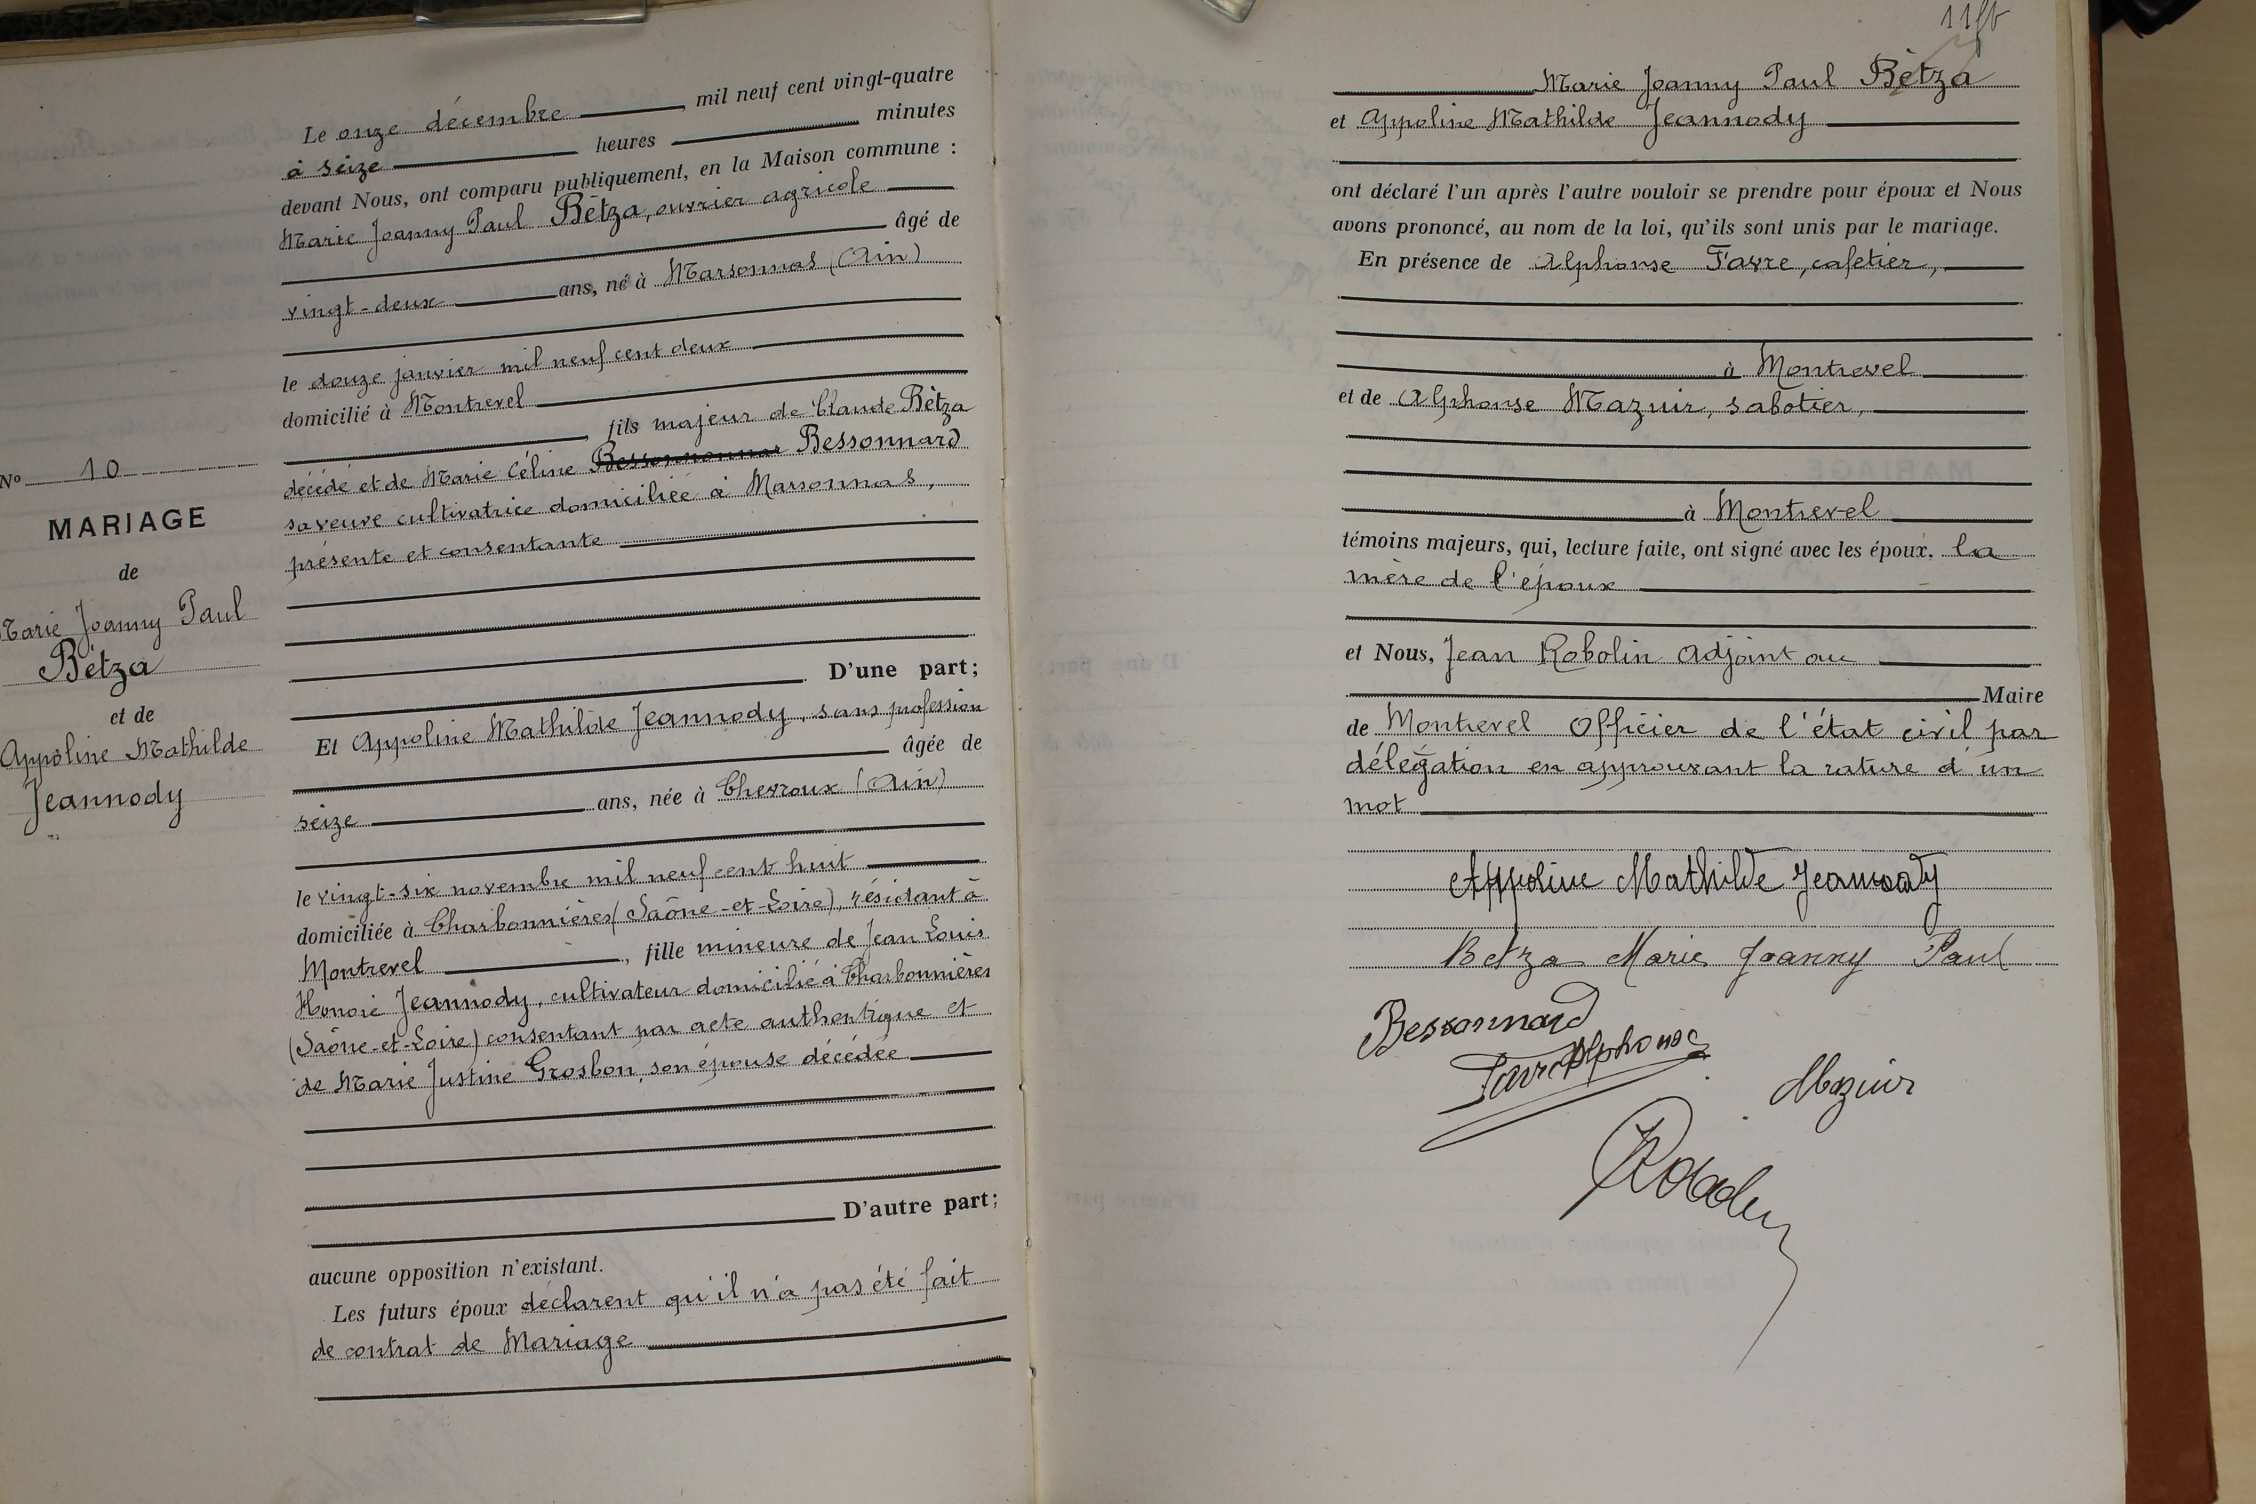 Le onze décembre mil neuf cent vingt-quatre
à seize heures minutes
devant Nous, ont comparu publiquement, en la Maison commune :
Marie Joanny Paul Bètza, ouvrier agricole
âgé de
vingt-deux ans, né à Marsonnas (Ain)
le douze janvier mil neuf cent deux
domicilié à Montrevel
, fils majeur de Claude Bètza
décédé et de Marie Céline Bessonnard
sa veuve cultivatrice domiciliée à Marsonnas,
présente et consentante
D'une part;
Et Appoline Mathilde Jeannody, sans profession
âgée de
seize ans, née à Chevroux (Ain)
le vingt-six novembre mil neuf cent huit
domiciliée à Charbonnières (Saône-et-Loire), résidant à
Montrevel, fille mineure de Jean Louis
Honoré Jeannody, cultivateur domicilié à Charbonnières
(Saône-et-Loire) consentant par acte authentique et
de Marie Justine Grosbon, son épouse décédée
D'autre part;
aucune opposition n'existant.
Les futurs époux déclarent qu'il n'a pas été fait
de contrat de Mariage
No 10
MARIAGE
de
Marie Joanny Paul
Bètza
et de
Appoline Mathilde
Jeannody
Marie Joanny Paul Bètza
et Appoline Mathilde Jeannody
ont déclaré l'un après l'autre vouloir se prendre pour époux et Nous
avons prononcé, au nom de la loi, qu'ils sont unis par le mariage.
En présence de Alphonse Favre, cafetier,
à Montrevel
et de Alphonse Mazuir, sabotier,
à Montrevel
témoins majeurs, qui, lecture faite, ont signé avec les époux. la
mère de l'époux
et Nous, Jean Robolin adjoint au
Maire
de Montrevel Officier de l'état civil par
délégation en approuvant la rature d'un
mot
Appoline Mathilde Jeannody
Betza Marie Joanny Paul
Bessonnard
Favre Alphonse
Mazuir